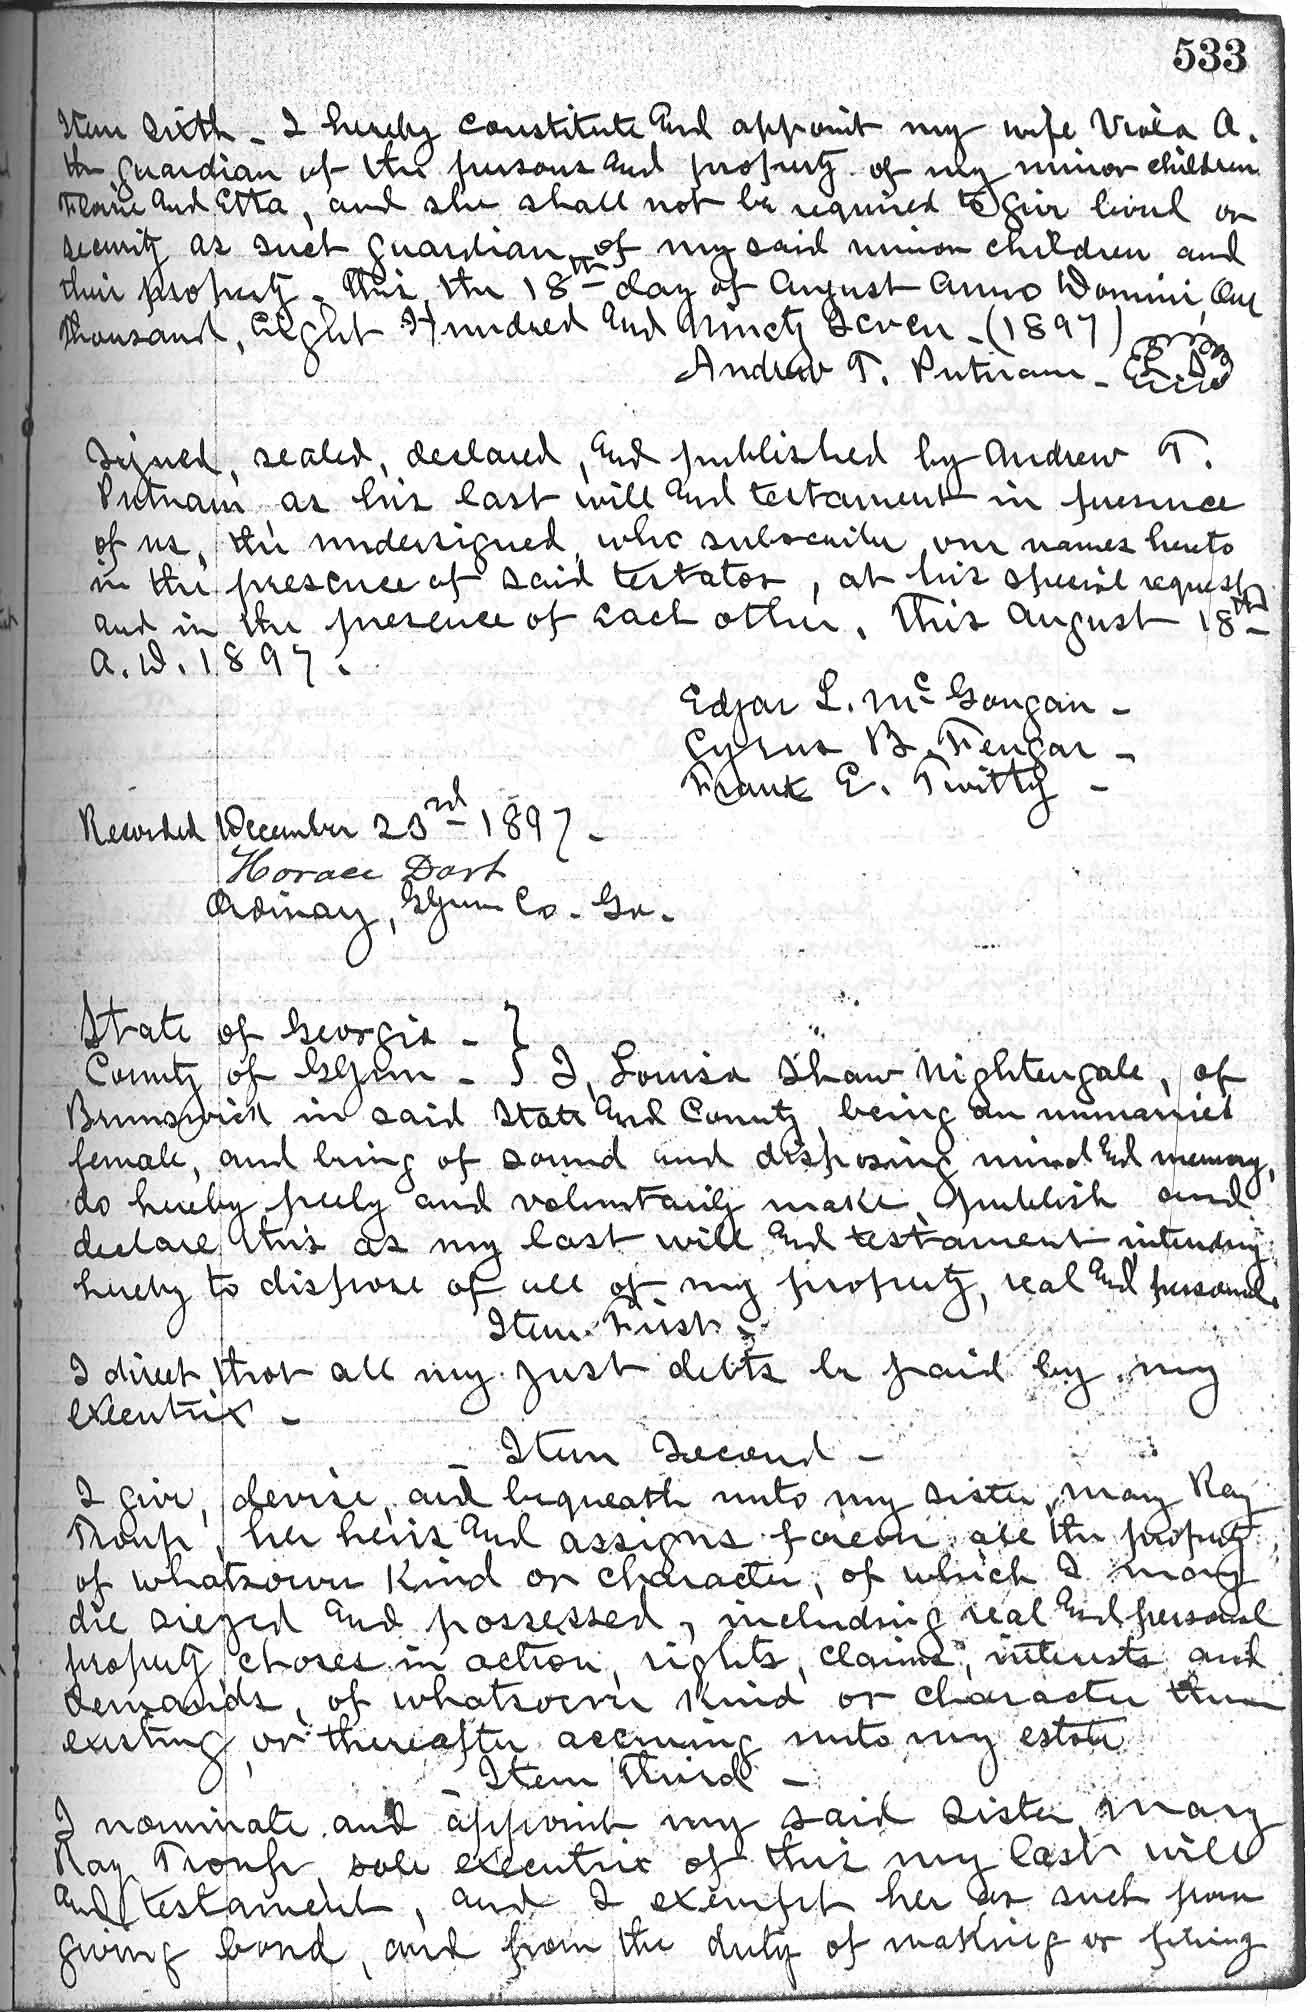 533
Item Sixth - I hereby constitute and appoint my wife Viola A.
the guardian of the persons and property of my minor children
and Etta, and she shall not be required to give bond or
security as such guardian of my said minor children and
their property. This, the 18th day of August Anno Domini, One
thousand, Eight Hundred and Ninety Seven - (1897)
Andrew T. Putnam -
Signed, sealed, declared, and published by Andrew T.
Putnam, as his last will and testament in presence
of us, the undersigned, who subscribe our names hereto
in the presence of said testator, at his special request
and in the presence of each other, this August 18th
A.D. 1897.
Edgar L. McGougan -
Cyrus B. Fengar -
Frank E. Twitty -
Recorded December 23rd 1897 -
Horace Dart
Ordinary, Glynn Co. Ga.
State of Georgia - }
County of Glynn - } I, Louisa Shaw Nightengale, of
Brunswick in said State and County, being an unmarried
female, and being of sound and disposing mind and memory,
do hereby freely and voluntarily make, publish and
declare this as my last will and testament intending
hereby to dispose of all of my property, real and personal.
Item First -
I direct that all my just debts be paid by my
executrix -
- Item Second -
I give, devise, and bequeath unto my sister, May Ray
Troup, her heirs and assigns forever all the property
of whatsoever kind or character, of which I may
die siezed and possessed, including real and personal
property, choses in action, rights, claims, interests and
demands, of whatsoever kind or character then
existing, or thereafter accruing unto my estate
- Item third -
I nominate and appoint my said sister Mary
Ray Troup, sole executrix of this my last will
and testament, and I exempt her as such from
giving bond, and from the duty of making or filing